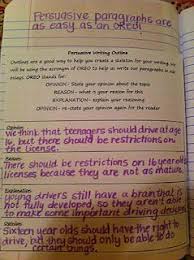 Persuasive paragraphs are
as easy as an OREO!
Persuasive Writing Outline
Outlines are a good way to help you create a skeleton for your writing. We
will be using the acronym of OREO to help us write our paragraphs in our
things. OREO Stands for:
OPINION - State your opinion about the topic
REASON - what is your reason for this
EXPLANATION - explain your reasoning
OPINION - re-state your opinion again for the reader
Opinion:
We think that teenagers should drive at age
16, but there should be restrictions on
the license.
Reason:
There should be restrictions on 16 year olds
licenses because they are not as mature.
Explanation:
young drivers still have a brain that is
not fully developed, so they aren't able
to make some important driving decisions
Opinion:
Sixteen year olds should have the right to
drive, but they should only be able to do
certain things.